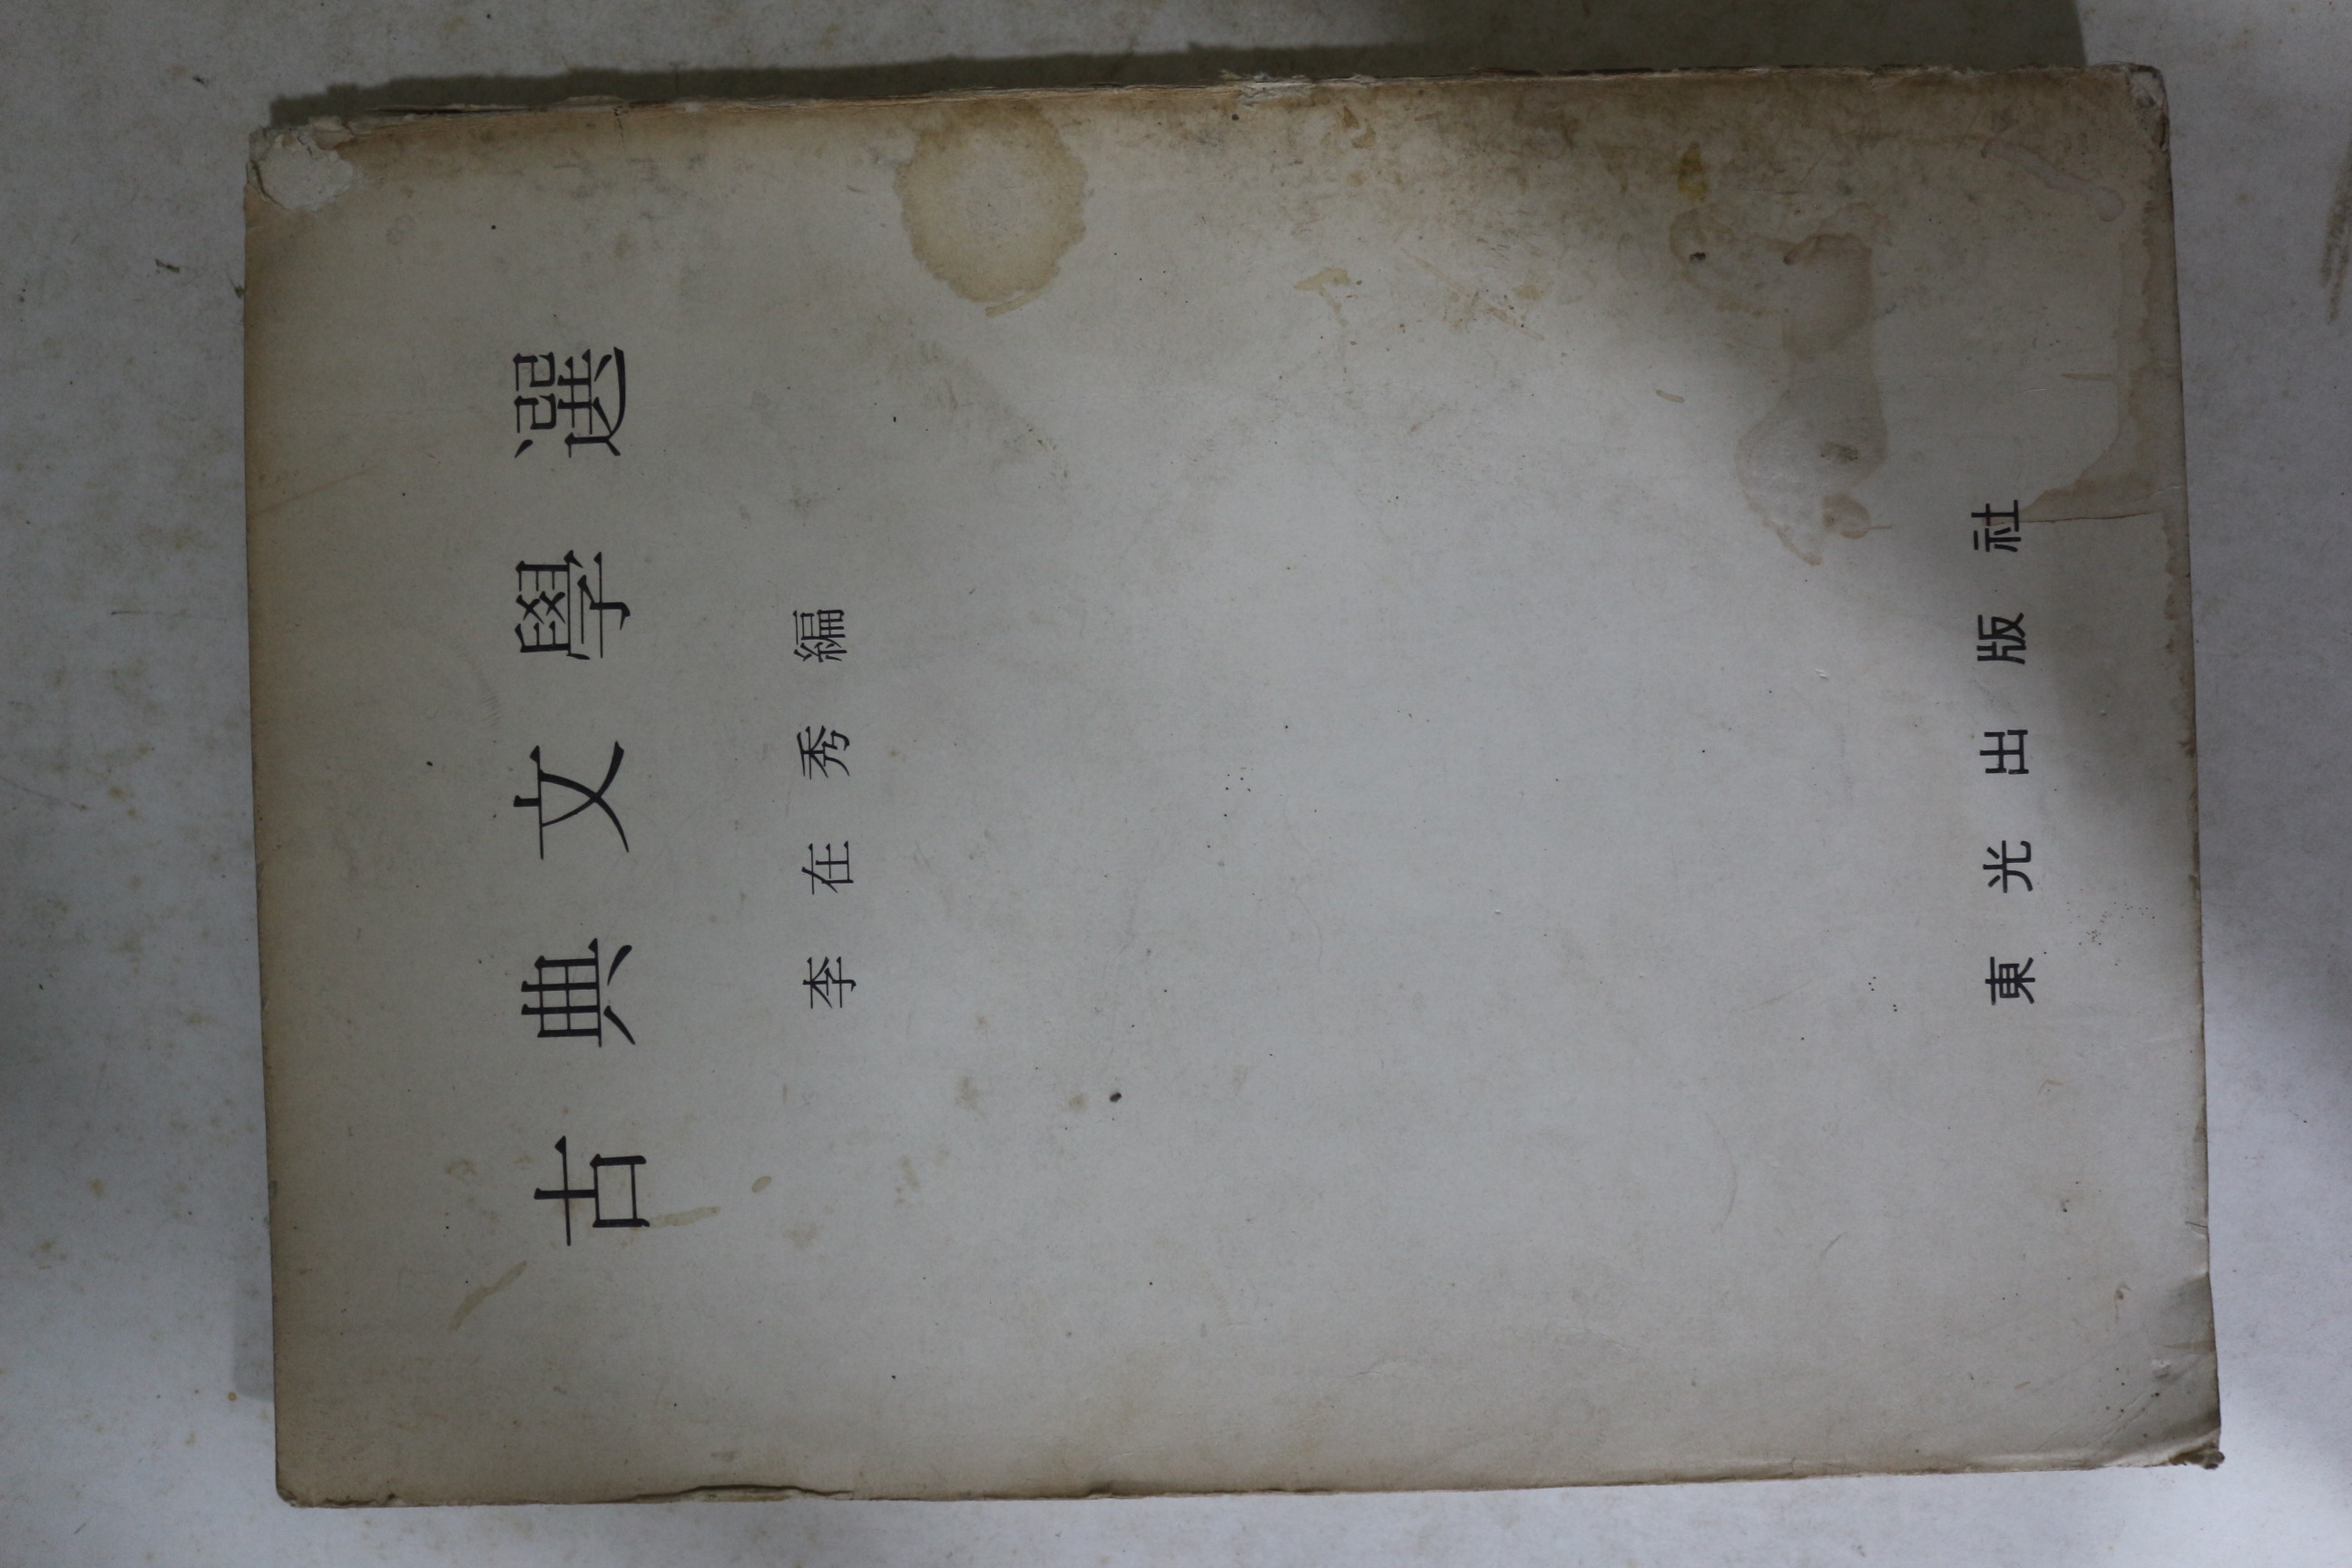 古典文學選
李在秀編
東光出版社